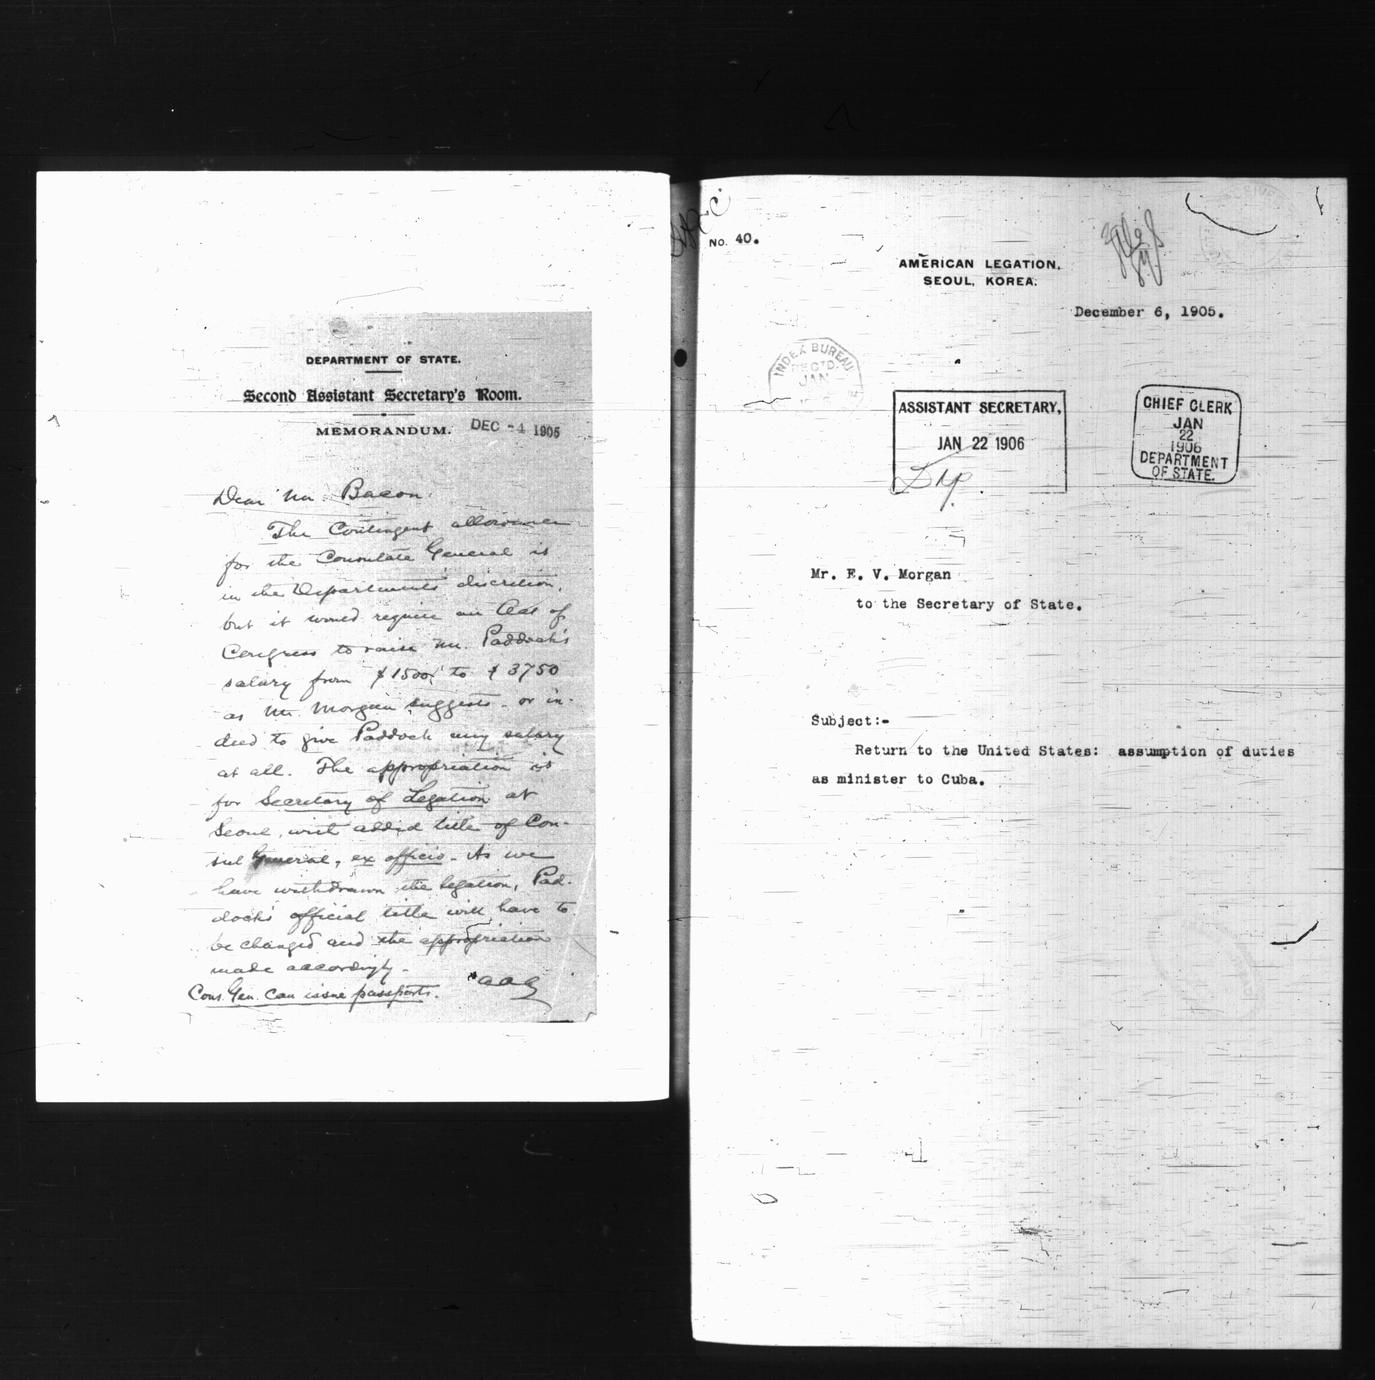 DEPARTMENT OF STATE.
Second Assistant Secretary's Room.
MEMORANDUM.
DEC -4 1905
Dear Mr. Bacon:
The Contingent allowance
for the Consulate General is
in the Department's discretion,
but it would require an Act of
Congress to raise Mr. Paddock's
salary from $1500 to $3750
as Mr. Morgan suggests - or in-
deed to give Paddock any salary
at all. The appropriation is
for Secretary of Legation at
Seoul, with added title of Con-
sul General, ex officio. As we
have withdrawn the legation, Pad-
dock's official title will have to
be changed and the appropriation
made accordingly.
AAA
Cons. Gen. can issue passports.
No. 40.
AMERICAN LEGATION,
SEOUL, KOREA.
December 6, 1905.
INDEX BUREAU
REC'D.
JAN
ASSISTANT SECRETARY,
JAN 22 1906
CHIEF CLERK
JAN
22
1906
DEPARTMENT
OF STATE.
Mr. E. V. Morgan
to the Secretary of State.
Subject:-
Return to the United States: assumption of duties
as minister to Cuba.